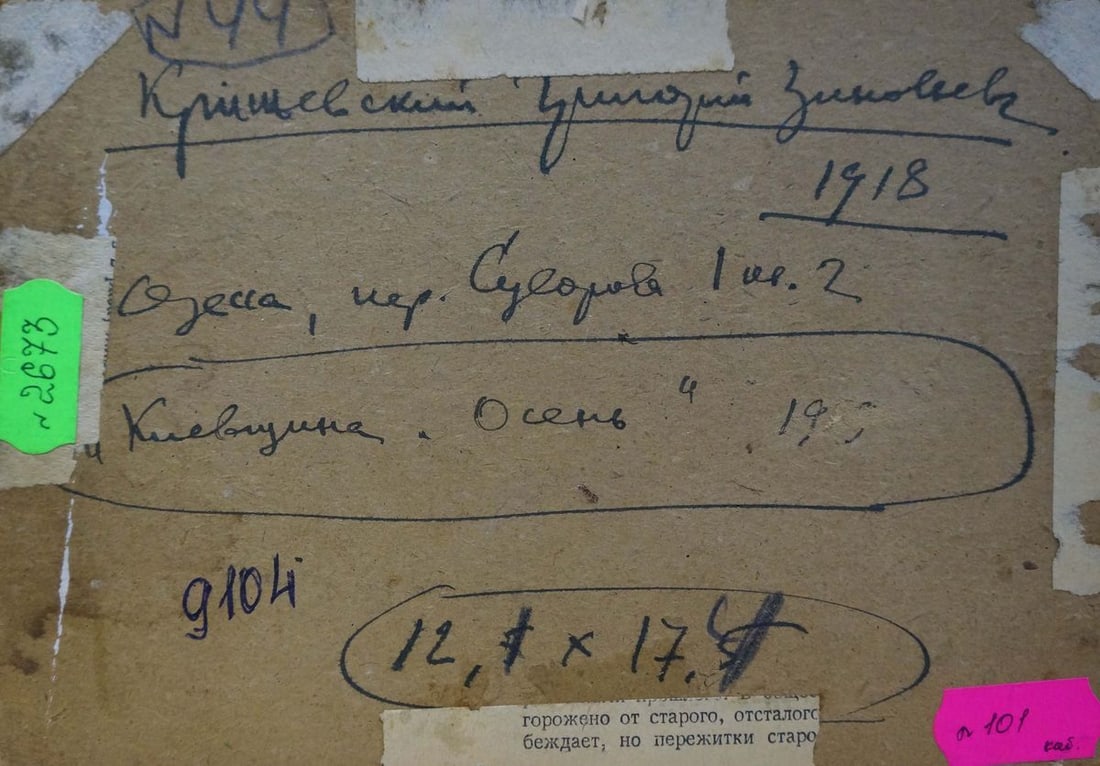 N 44
Крищевский Григорий Зиновьев
1918
Одесса, пер. Суворова 1 кв. 2
№ 2673
"Киевщина. Осень" 19
9104
12, x 17,
горожено от старого, отсталого
беждает, но пережитки старо
№ 101
каб.